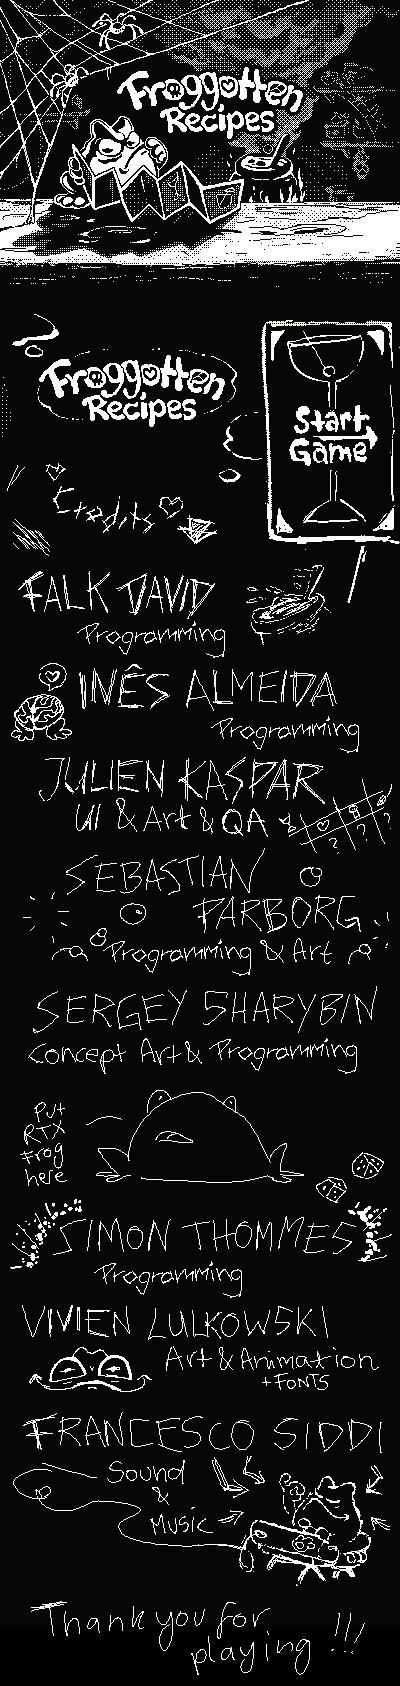 Froggotten
Recipes
Froggotten
Recipes
Start
Game
Credits
FALK DAVID
Programming
INÊS ALMEIDA
Programming
JULIEN KASPAR
UI & Art & QA
? ? ?
SEBASTIAN
PARBORG
Programming & Art
SERGEY SHARYBIN
Concept Art & Programming
Put
RTX
frog
here
SIMON THOMMES
Programming
VIVIEN LULKOWSKI
Art & Animation
+ FONTS
FRANCESCO SIDDI
Sound
&
Music
Thank you for
playing !!!